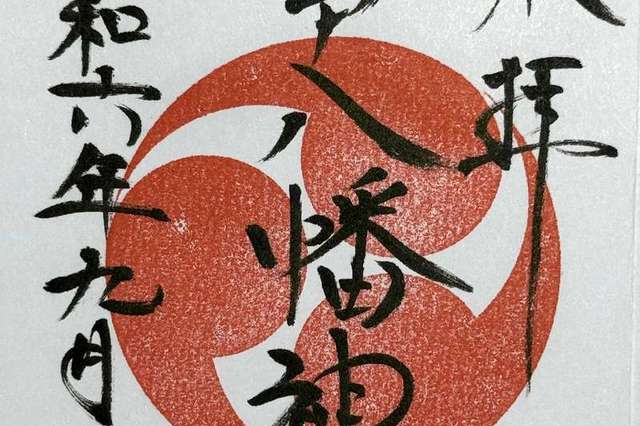 拝
八幡神
和六年九月